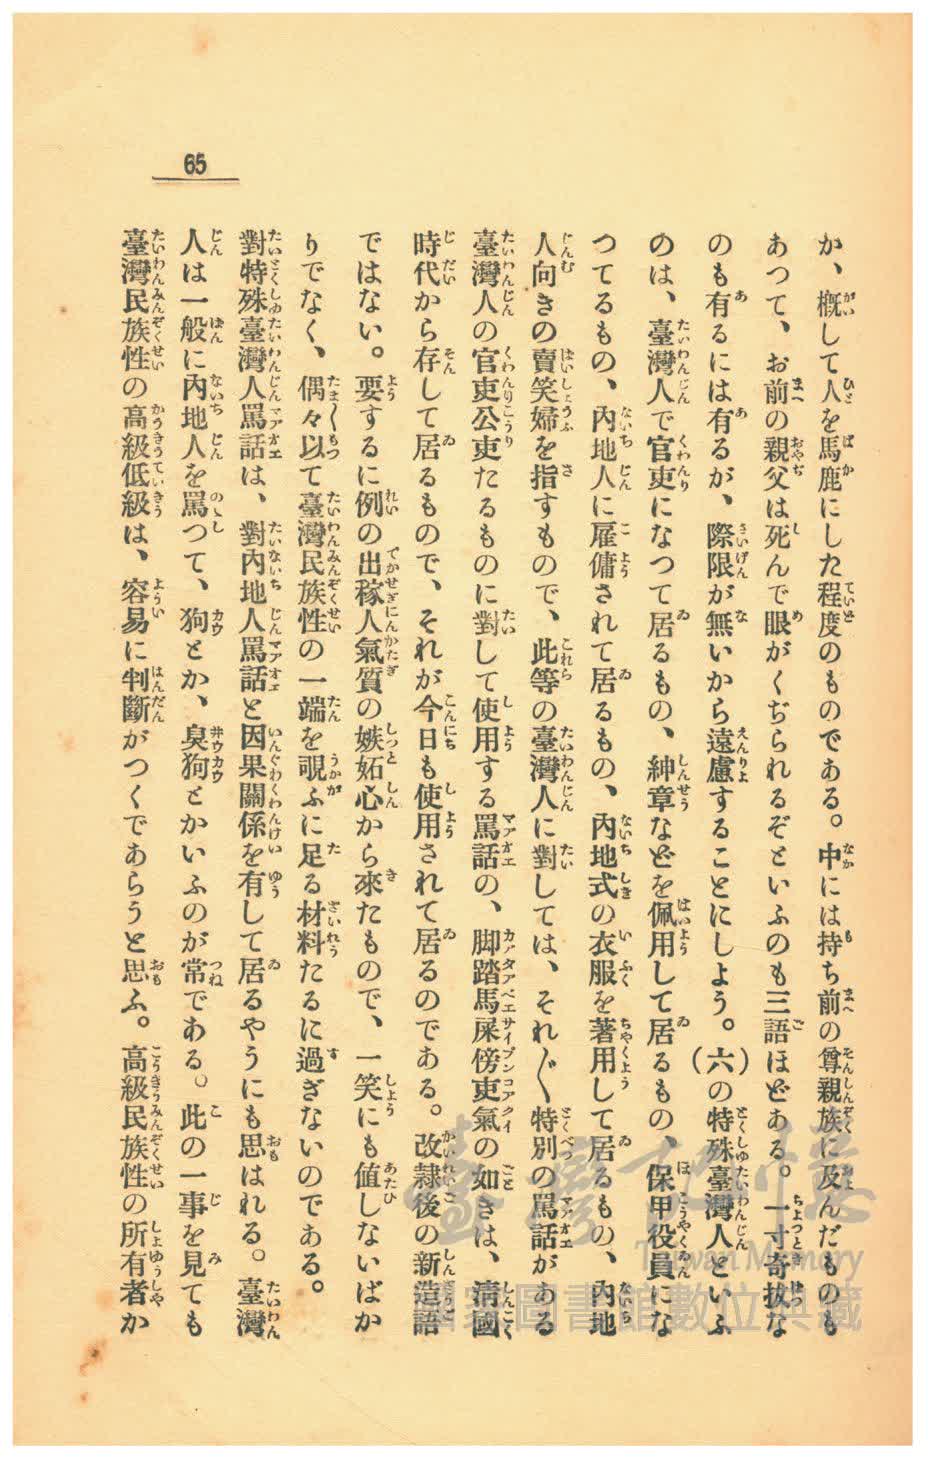 65
か、槪して人を馬鹿にした程度のものである。中には持ち前の尊親族に及んだものも
あつて、お前の親父は死んで眼がくぢられるぞといふのも三語ほどある。一寸奇拔な
のも有るには有るが、際限が無いから遠慮することにしよう。(六)の特殊臺灣人といふ
のは、臺灣人で官吏になつて居るもの、紳章などを佩用して居るもの、保甲役員にな
つてるもの、內地人に雇傭されて居るもの、內地式の衣服を著用して居るもの、內地
人向きの賣笑婦を指すもので、此等の臺灣人に對しては、それ〲特別の罵話がある
臺灣人の官吏公吏たるものに對して使用する罵話の、脚踏馬屎傍吏氣の如きは、淸國
時代から存して居るもので、それが今日も使用されて居るのである。改隷後の新造語
ではない。要するに例の出稼人氣質の嫉妬心から來たもので、一笑にも値しないばか
りでなく、偶々以て臺灣民族性の一端を覗ふに足る材料たるに過ぎないのである。
對特殊臺灣人罵話は、對內地人罵話と因果關係を有して居るやうにも思はれる。臺灣
人は一般に內地人を罵つて、狗とか、臭狗とかいふのが常である。此の一事を見ても
臺灣民族性の高級低級は、容易に判斷がつくであらうと思ふ。高級民族性の所有者か
臺灣記憶
Taiwan Memory
國家圖書館數位典藏